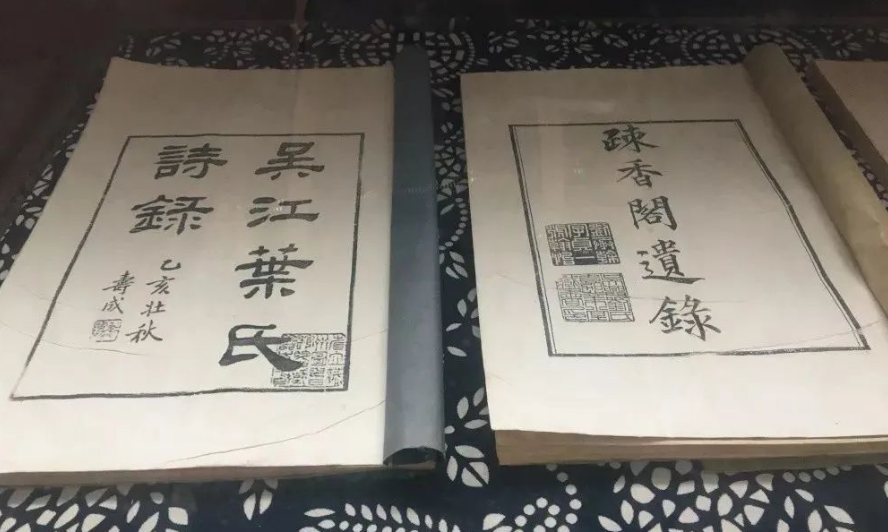 吳江葉氏
詩録
乙亥壮秋
壽成
疎香閣遺錄